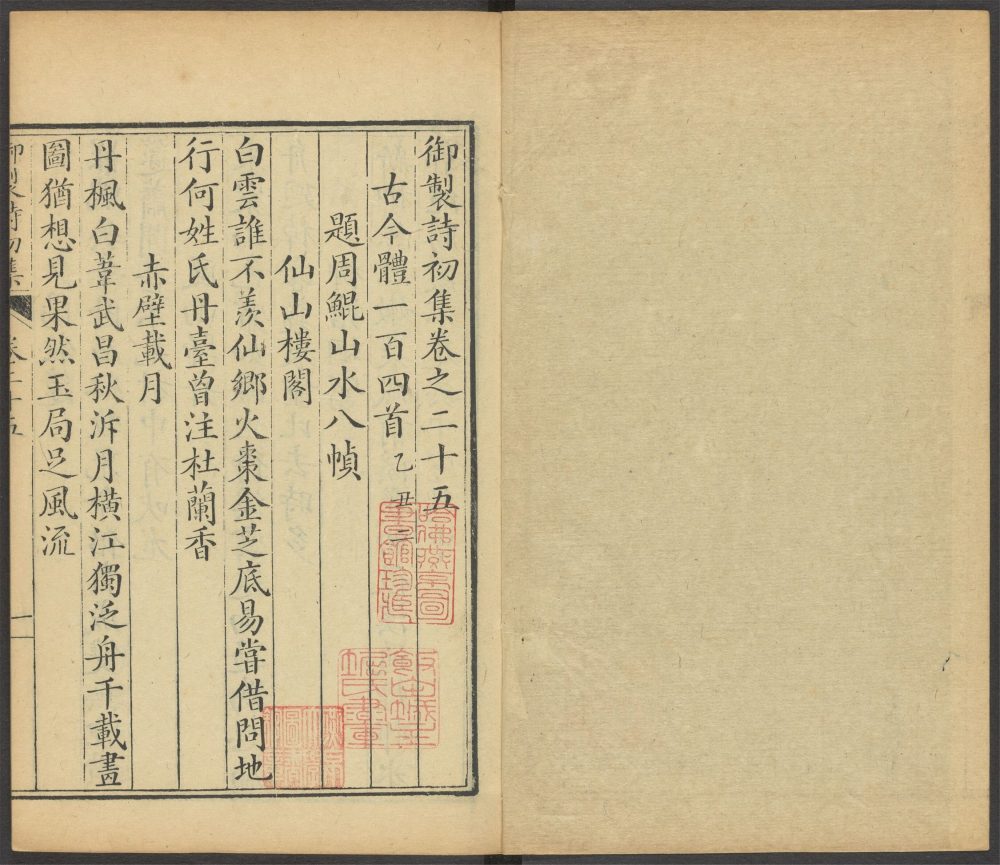 御製詩初集卷之二十五
古今體一百四首 乙丑二
題周鯤山水八幀
仙山樓閣
白雲誰不羨仙鄉火棗金芝底易嘗借問地
行何姓氏丹臺曾注杜蘭香
赤壁載月
丹楓白葦武昌秋泝月橫江獨泛舟千載畫
圖猶想見果然玉局足風流
御製詩初集
卷二十五
一
哈佛燕京圖書館珍藏